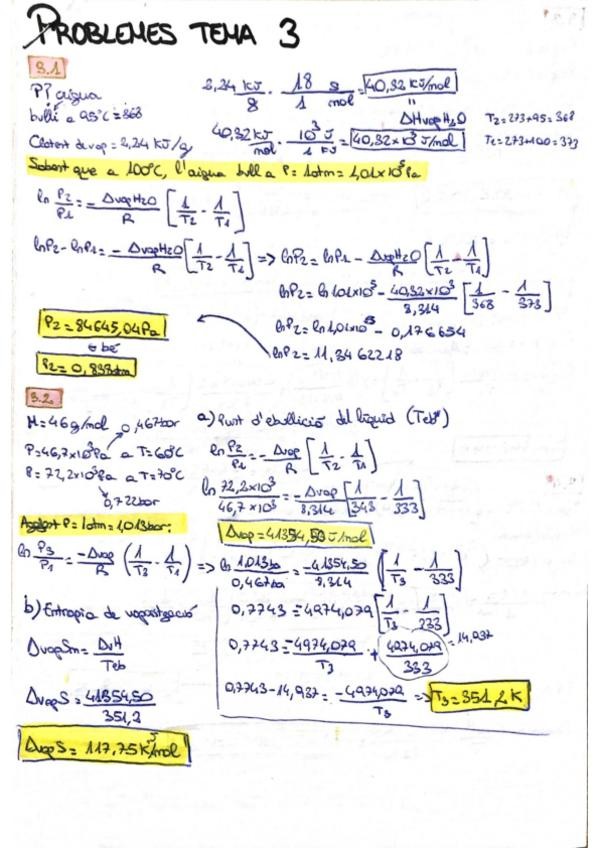 PROBLEMES TEMA 3
3.1
P? aigua
bulli a 95°C = 368
Clatent de vap = 2,24 KJ/g
2,24 KJ/g · 18 g/1 mol = 40,32 KJ/mol
ΔHvap H2O
40,32 KJ/mol · 10³ J/1 KJ = 40,32x10³ J/mol
T2 = 273+95 = 368
T1 = 273+100 = 373
Sabent que a 100°C, l'aigua bull a P = 1atm = 1,01x10⁵ Pa
ln P2/P1 = - ΔvapH2O/R [1/T2 - 1/T1]
lnP2 - lnP1 = - ΔvapH2O/R [1/T2 - 1/T1] => lnP2 = lnP1 - ΔvapH2O/R [1/T2 - 1/T1]
lnP2 = ln 1,01x10⁵ - 40,32x10³/8,314 [1/368 - 1/373]
lnP2 = ln 1,01x10⁵ - 0,176654
lnP2 = 11,3462218
P2 = 84645,04 Pa
o bé
P2 = 0,838atm
3.2.
M = 46 g/mol
0,467bar
P = 46,7x10³ Pa a T = 60°C
P = 72,2x10³ Pa a T = 70°C
0,722bar
P = 1atm = 1,013bar:
a) Punt d'ebullició del líquid (Teb)
ln P2/P1 = - Δvap/R [1/T2 - 1/T1]
ln 72,2x10³/46,7x10³ = - Δvap/8,314 [1/343 - 1/333]
Δvap = 41354,50 J/mol
ln P3/P1 = -Δvap/R (1/T3 - 1/T1) => ln 1,013ba/0,467ba = -41354,50/8,314 [1/T3 - 1/333]
0,7743 = -4974,079 [1/T3 - 1/233]
0,7743 = -4974,079/T3 + 4974,079/333 = 14,937
0,7743 - 14,937 = -4974,079/T3 => T3 = 351,2 K
b) Entropia de vaporització
ΔvapSm = ΔvH/Teb
ΔvapS = 41354,50/351,2
ΔvapS = 117,75 J/K mol